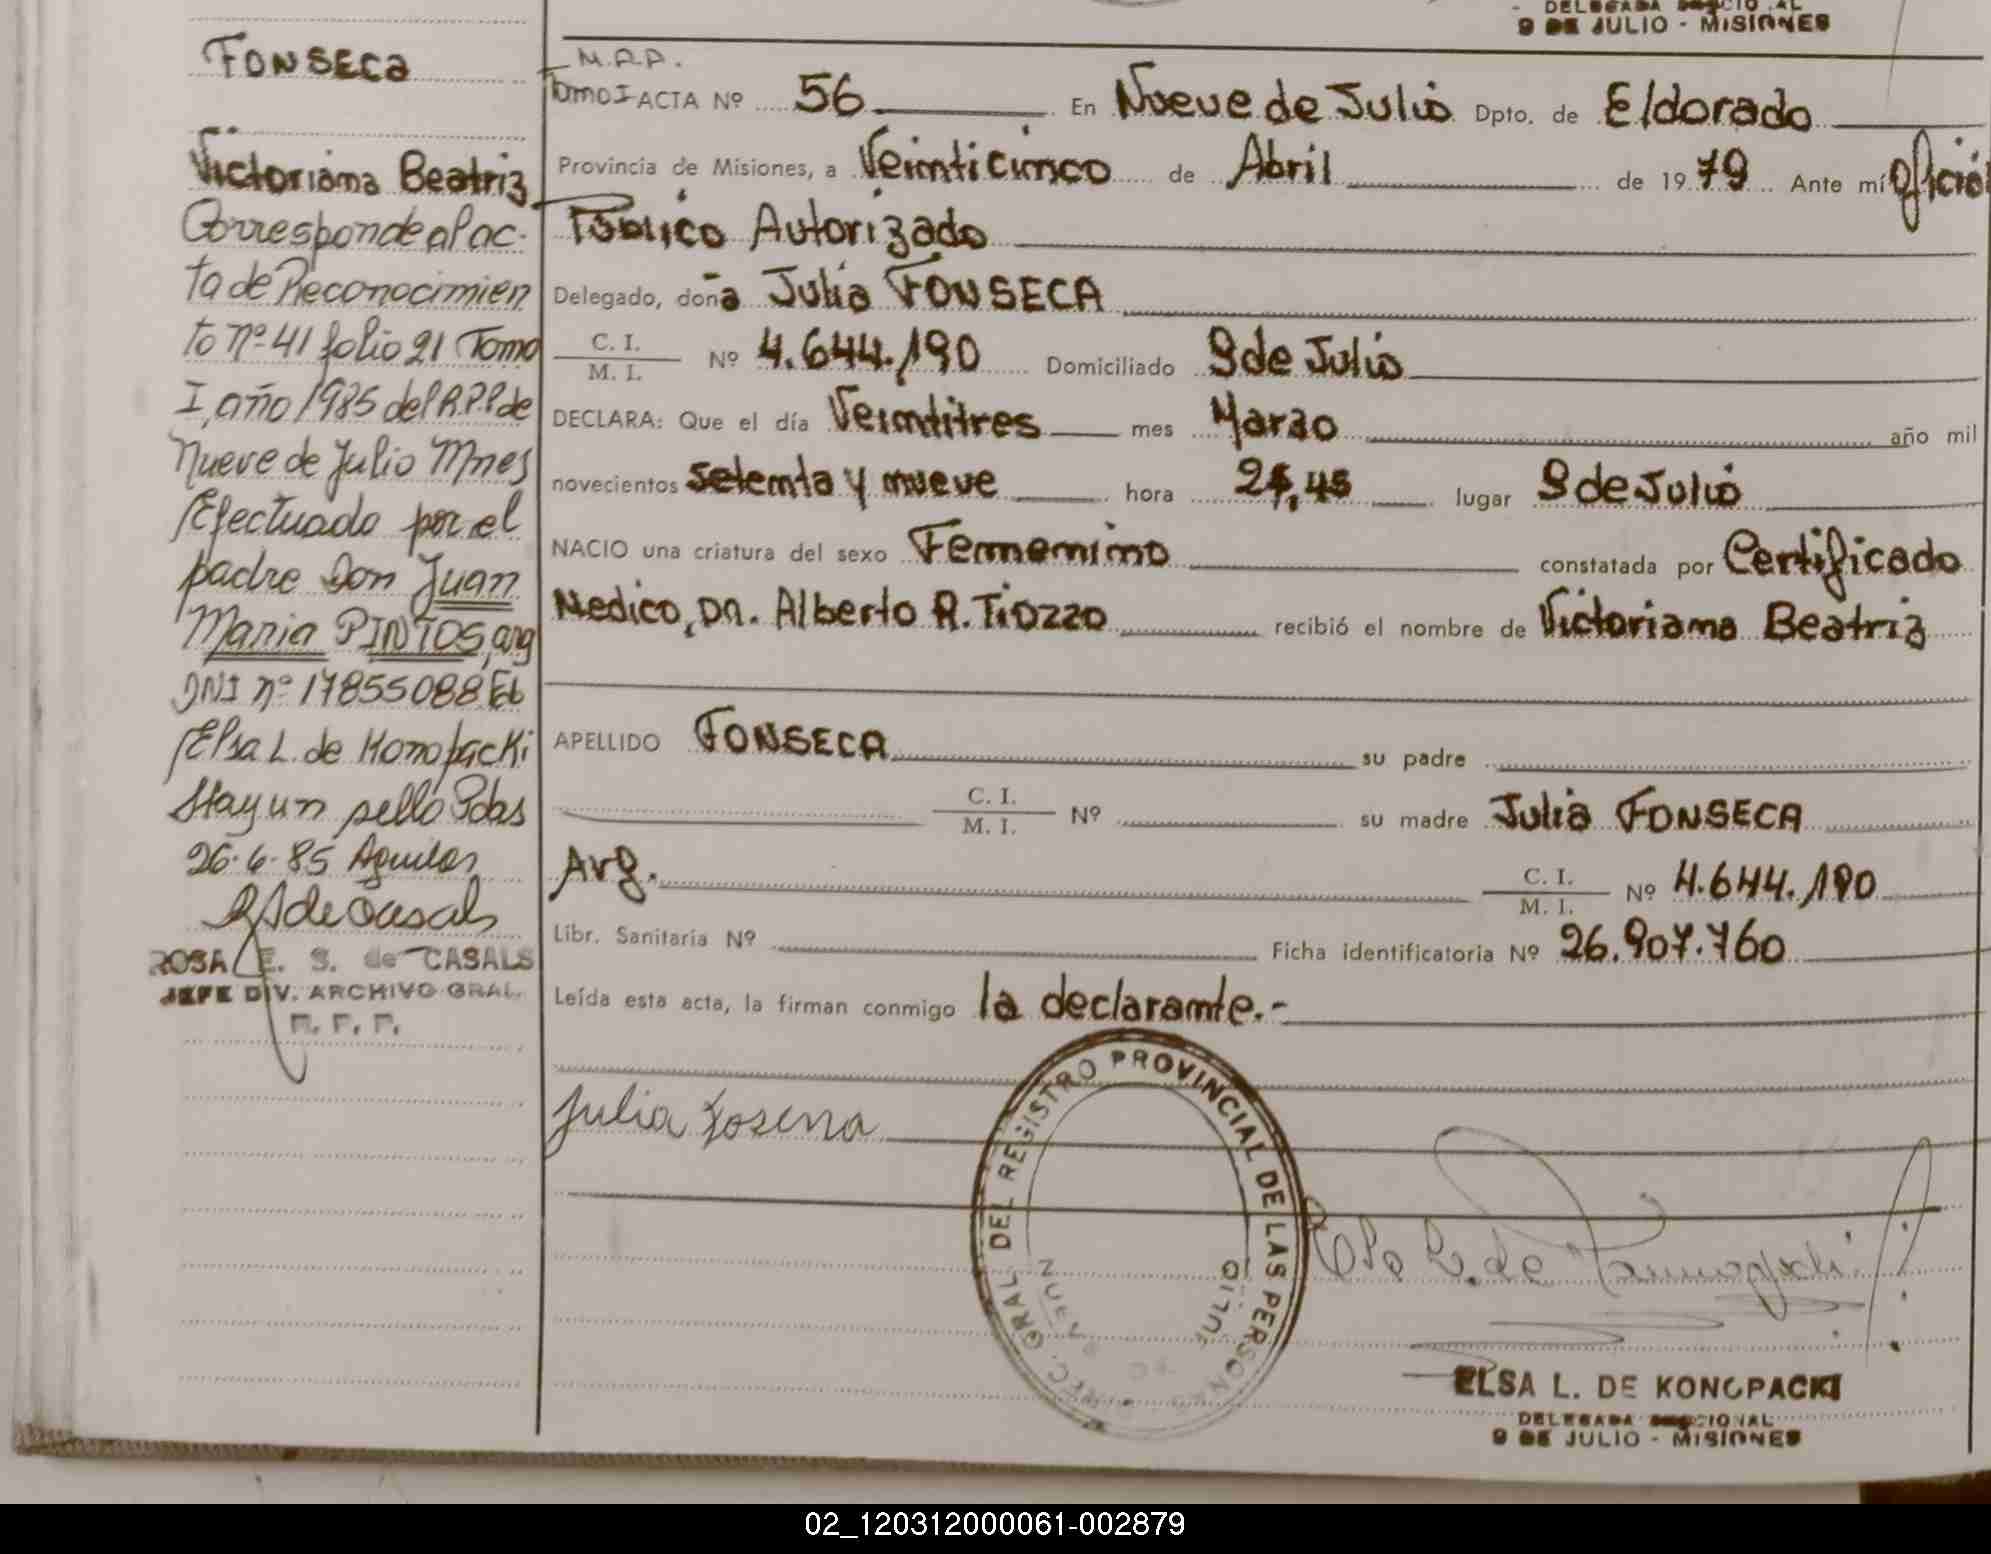 DELEGADA
9 DE JULIO - MISIONES
FONSECA
Victoriana Beatriz
Corresponde al ac-
ta de Reconocimien
to nº 41 folio 21 Tomo
I, año 1985 del R.P.P de
Nueve de Julio Mnes
Efectuado por el
padre Don Juan
Maria PINTOS, arg
DNI nº 17855088 Eb
Elsa L. de Konopacki
Hay un sello Pdas
26-6-85 Aguilar
ROSA E. S. de CASALS
JEFE DIV. ARCHIVO GRAL.
R. P. P.
Tomo I ACTA Nº 56 En Nueve de Julio Dpto. de Eldorado
Provincia de Misiones, a Veinticinco de Abril de 1979 Ante mí Oficial
Público Autorizado
Delegado, doña Julia FONSECA
C. I. / M. I. Nº 4.644.190 Domiciliado 9 de Julio
DECLARA: Que el día Veintitres mes Marzo año mil
novecientos setenta y nueve hora lugar 9 de Julio
NACIO una criatura del sexo Femenino constatada por Certificado
Medico, Dr. Alberto R. Tiozzo recibió el nombre de Victoriana Beatriz
APELLIDO FONSECA su padre
C. I. / M. I. Nº su madre Julia FONSECA
Arg. C. I. / M. I. Nº 4.644.190
Libr. Sanitaria Nº Ficha identificatoria Nº 26.907.760
Leída esta acta, la firman conmigo la declarante.-
Julia Fosena
DIREC. GRAL. DEL REGISTRO PROVINCIAL DE LAS PERSONAS
NUEVE DE JULIO
Elsa L. de Konopacki
ELSA L. DE KONOPACKI
DELEGADA
9 DE JULIO - MISIONES
02_120312000061-002879